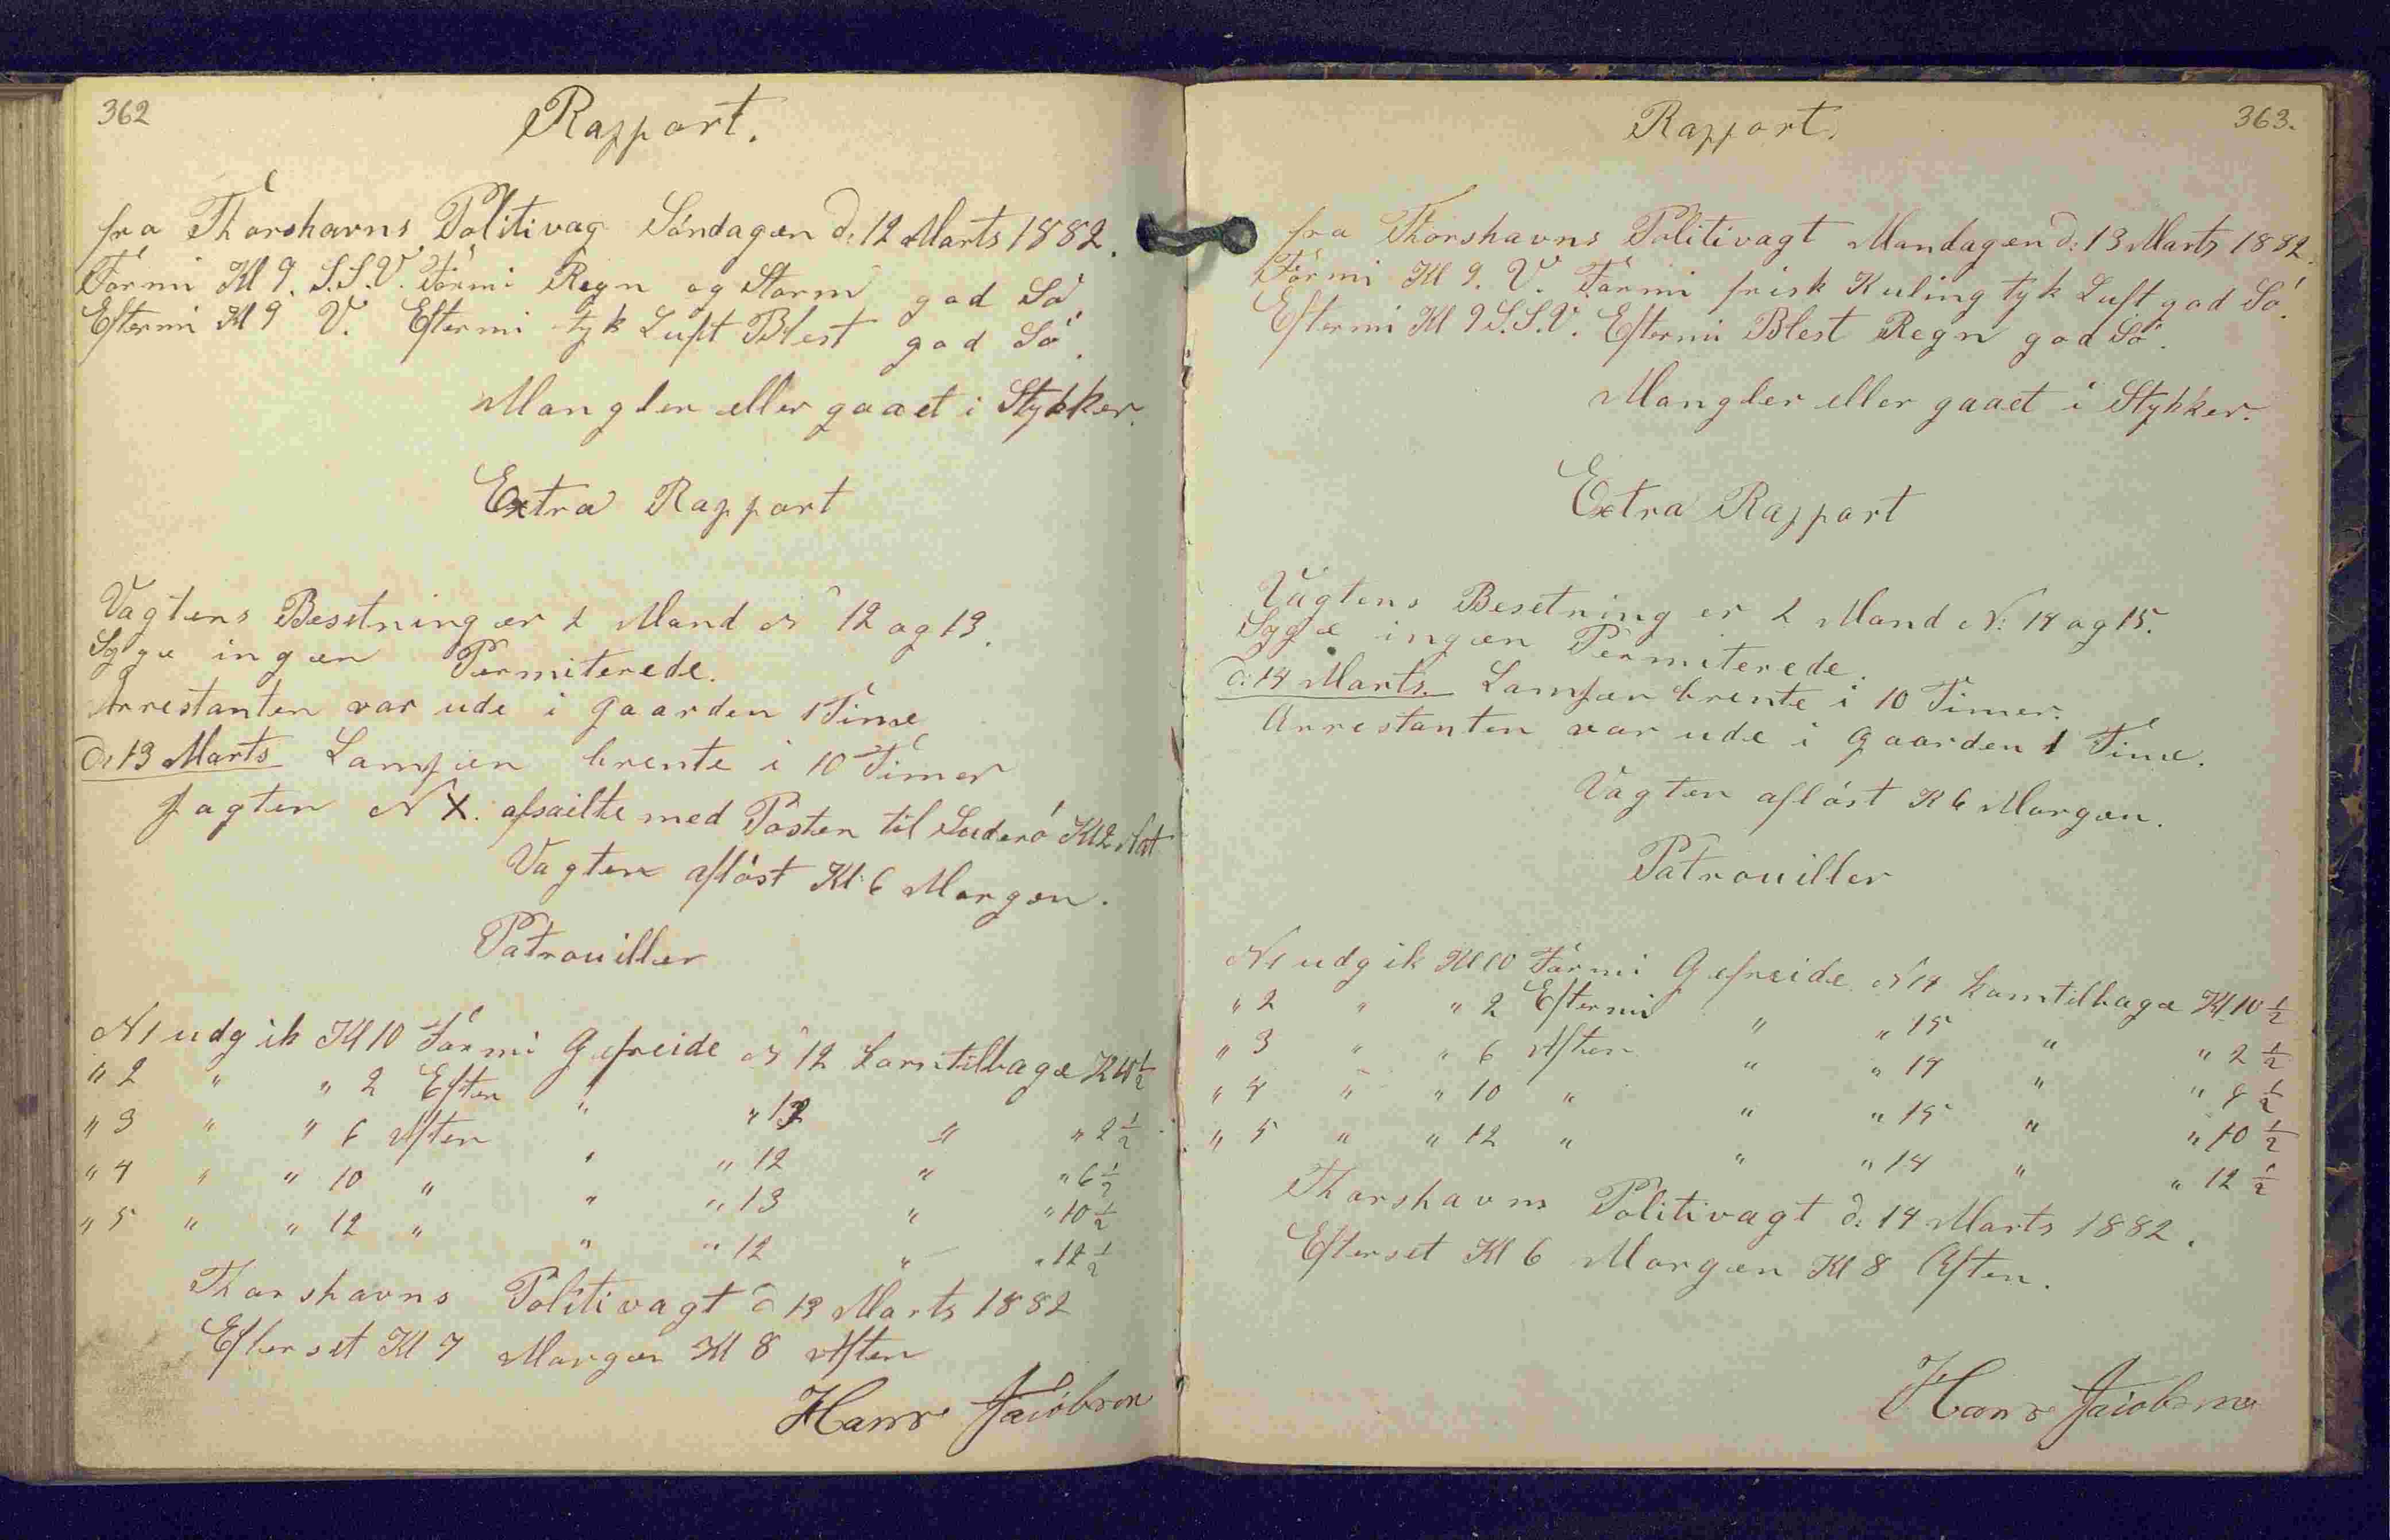 362
Rapport.
fra Thorshavns Politivag Söndagen d: 12 Marts 1882.
Formi Kl 9. S.S.V. Formi Regn og Storm god Sö.
Eftermi Kl 9 V. Eftermi tyk Luft Blest god Sö.
Mangler eller gaaet i Stykker.
Extra Rapport
Vagtens Besetning er 2 Mand N 12 og 13.
Syge ingen Permiterede.
Arrestanten var ude i Gaarden 1 Time
d: 13 Marts Lampen brente i 10 Timer
Jagten N X. afsailte med Posten til Suderö Kl 2 Nat
Vagten aflöst Kl: 6 Morgen.
Patrouiller
N1 udgik Kl 10 Formi Gefreide N 12 komtilbage Kl 10 1/2
" 2 " " 2 Eften " " 13 " " 2 1/2
" 3 " " 6 Aften " " 12 " " 6 1/2
" 4 " " 10 " " " 13 " " 10 1/2
" 5 " " 12 " " " 12 " " 12 1/2
Thorshavns Politivagt d 13 Marts 1882
Efterset Kl 7 Morgen Kl 8 Aften
Hans Jacobsen
363.
Rapport.
fra Thorshavns Politivagt Mandagen d: 13 Marts 1882.
Formi Kl 9. V. Formi frisk Kuling tyk Luft god Sö.
Eftermi Kl 9 S.S.V. Eftermi Blest Regn god Sö.
Mangler eller gaaet i Stykker.
Extra Rapport
Vagtens Besetning er 2 Mand N: 14 og 15.
Syge ingen Permiterede.
d: 14 Marts. Lampen brente i 10 Timer.
Arrestanten var ude i Gaarden 1 Time.
Vagten aflöst Kl 6 Morgen.
Patrouiller
N1 udgik Kl 10 Formi Gefreide N 14 komtilbage Kl 10 1/2
" 2 " " 2 Eftermi " " 15 " " 2 1/2
" 3 " " 6 Aften " " 14 " " 6 1/2
" 4 " " 10 " " " 15 " " 10 1/2
" 5 " " 12 " " " 14 " " 12 1/2
Thorshavns Politivagt d: 14 Marts 1882.
Efterset Kl 6 Morgen Kl 8 Aften.
Hans Jacobsen